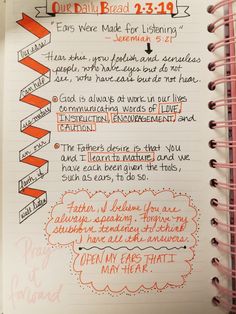 Our Daily Bread 2-3-19
"Ears Were Made for Listening"
- Jeremiah 5:21
Hear this, you foolish and senseless
people, who have eyes but do not
see, who have ears but do not hear.
God is always at work in our lives
communicating words of LOVE,
INSTRUCTION, ENCOURAGEMENT and
CAUTION.
The Father's desire is that you
and I learn to mature, and we
have each been given the tools,
such as ears, to do so.
Father, I believe You are
always speaking. Forgive my
stubborn tendency to think
I have all the answers.
OPEN MY EARS THAT I
MAY HEAR.
in our
faith, if
Pray
it
forward